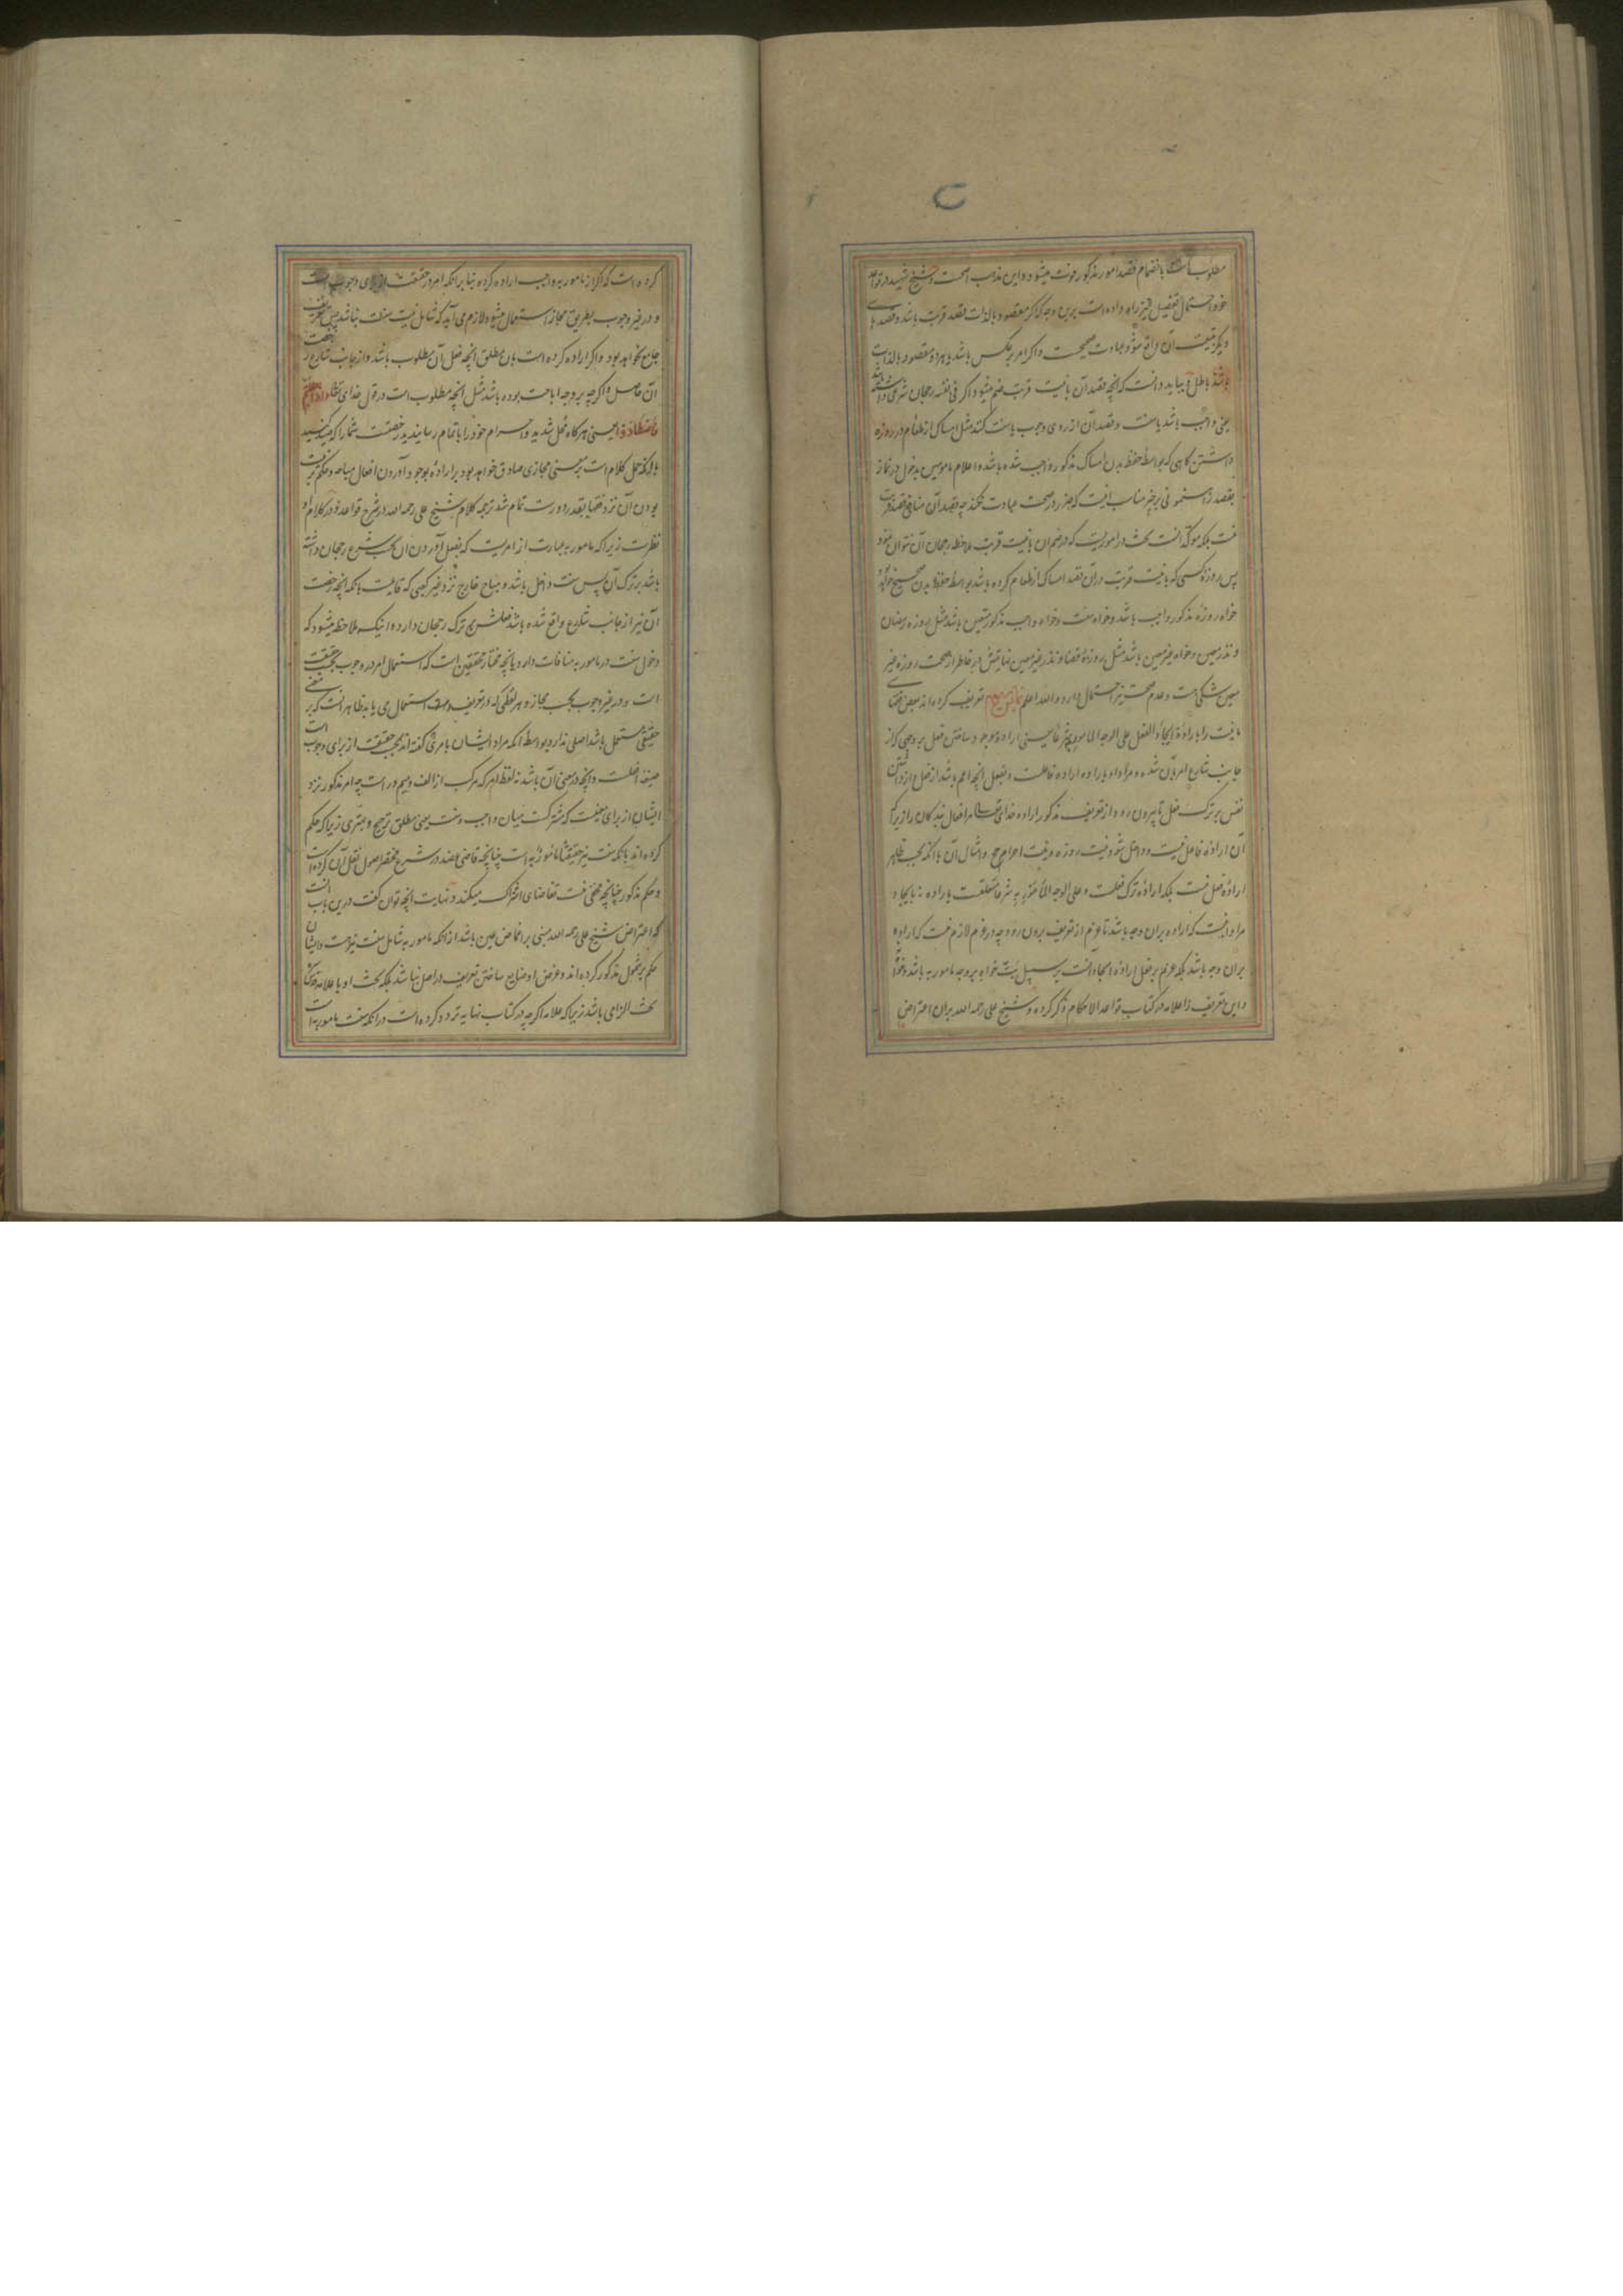 مطلوب است بانضمام قصد امور مذکور فوت میشود و این مذهب اصحست و شیخ شهید در قواعد
خود احتمال تفصیل نیز راه داده است برین وجه که اگر مقصود بالذات قصد قربت باشد و قصدهای
دیگر بتبعیت آن واقع شود عبادت صحیحست و اگر امر برعکس باشد یا هر دو مقصود بالذات
باشد باطل بباید دانست که آنچه قصد آن با نیت قربت ضم میشود اگر فی نفسه رجحان شرعی داشته باشد
یعنی واجب باشد یا سنت و قصد آن از روی وجوب یا سنت کنند مثل امساک از طعام در روزه
داشتن گاهی که بواسطه حفظ بدن امساک مذکور واجب شده باشد و اعلام ماموین بدخول در نماز
بقصد رهنمونی بر خیر مناسب آنست که ضرر در صحت عبادت نکند چه قصد آن منافی قصد قربت
نیست بلکه مؤکد آنست بحث در اموریست که در ضم آن با نیت قربت ملاحظه رجحان آن نتوان نمود
پس روزه کسی که با نیت قربت در آن قصد امساک از طعام کرده باشد بواسطه حفظ بدن صحیح خواهد بود
خواه روزه مذکور واجب باشد و خواه سنت و خواه واجب مذکور متعین باشد مثل روزه رمضان
و نذر معین و خواه غیر معین باشد مثل روزه قضا و نذر غیر معین نهایتش در خاطر از صحت روزه غیر
معین شکی هست و عدم صحت نیز احتمال دارد والله اعلم تعریف کرده اند بعضی فقهای
ما نیت را باراده ایجاد الفعل علی الوجه المأمور به شرعا یعنی اراده بوجود ساختن فعل بر وجهی که از
جانب شارع امر بآن شده و مراد او باراده اراده فاعلست و بفعل آنچه اعم باشد از فعل از داشتن
نفس بر ترک فعل تا بیرون رود از تعریف مذکور اراده خدایتعالی مر افعال بندگان را زیرا که
آن اراده فاعل نیست و داخل شود نیت روزه و نیت احرام حج و امثال آن با آنکه بحسب ظاهر
اراده فعل نیست بلکه اراده ترک فعلست و علی الوجه المأمور به شرعا متعلقست باراده نه بایجاد و
مراد نیست که اراده بر آن وجه باشد تا عزم از تعریف بیرون رود چه در عزم لازم نیست که اراده
بر آن وجه باشد بلکه عزم بر فعل اراده ایجاد آنست بر سبیل بت خواه بر وجه مامور به باشد و خواه نه
و این تعریف را علامه در کتاب قواعد الاحکام ذکر کرده و شیخ علی رحمه الله بر آن اعتراض
کرده است که اگر از مامور به واجب اراده کرده بنا بر آنکه امر در حقیقت از برای وجوب است
و در غیر وجوب بطریق مجاز استعمال میشود لازم می آید که شامل نیت سنت نباشد پس تعریف
جامع نخواهد بود و اگر اراده کرده است بآن مطلق آنچه فعل آن مطلوب باشد و از جانب شارع رخصت
آن حاصل و اگر چه بر وجه اباحت بوده باشد مثل آنچه مطلوب است در قول خدای تعالی و اذا حللتم
فاصطادوا یعنی هر گاه محل شدید و احرام خود را باتمام رسانیدید رخصتست شما را که صید کنید
با آنکه حمل کلام است بر معنی مجازی صادق خواهد بود بر اراده بوجود آوردن افعال مباحه و حکم بر نیت
بودن آن نزد فقها بقدر دورست تمام شد ترجمه کلام شیخ علی رحمه الله در شرح قواعد و در کلام او
نظرست زیرا که مامور به عبارت از امریست که بفعل آوردن آن بحسب شرع رجحان داشته
باشد بر ترک آن پس سنت داخل باشد و مباح خارج نزد غیر کعبی که قایلست بآنکه آنچه رخصت
آن نیز از جانب شارع واقع شده باشد فعلش بر ترک رجحان دارد و اینکه ملاحظه میشود که
دخول سنت در مامور به منافات دارد بآنچه مختار محققین است که استعمال امر در وجوب بحسب حقیقت
است و در غیر وجوب بحسب مجاز و هر لفظی که در تعریف استعمال می یابد ظاهر آنست که بر معنی
حقیقی مستعمل باشد اصلی ندارد بواسطه آنکه مراد ایشان بامری که گفته اند بحسب حقیقت از برای وجوب است
صیغه افعلست و آنچه در معنی آن باشد نه لفظ امر که مرکب از الف و میم و راست چه امر مذکور نزد
ایشان از برای معنیست که مشترکست میان واجب و سنت یعنی مطلق ترجیح و بهتری زیرا که حکم
کرده اند بآنکه سنت نیز حقیقتا مامور به است چنانچه قاضی عضد در شرح مختصر اصول نقل آن کرده است
و حکم مذکور چنانچه مخفی نیست تقاضای اشتراک میکند و نهایت آنچه توان گفت درین باب آنست
که اعتراض شیخ علی رحمه الله مبنی بر اغماض عین باشد از آنکه مامور به شامل سنت نیز هست و ایشان
حکم بشمول مذکور کرده اند و غرض او ضایع ساختن تعریف در اصل نباشد بلکه بحث او با علامه
بحث الزامی باشد زیرا که علامه اگر چه در کتاب نهایه تردد کرده است در آنکه سنت مامور به است